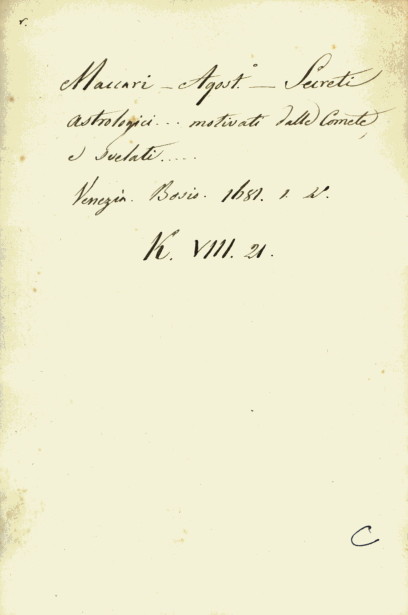 r.
Maccari – Agost.º – Secreti
astrologici... motivati dalle Comete,
e svelati.....
Venezia. Bosio. 1681. 1. 4º.
K. VIII. 21.
C